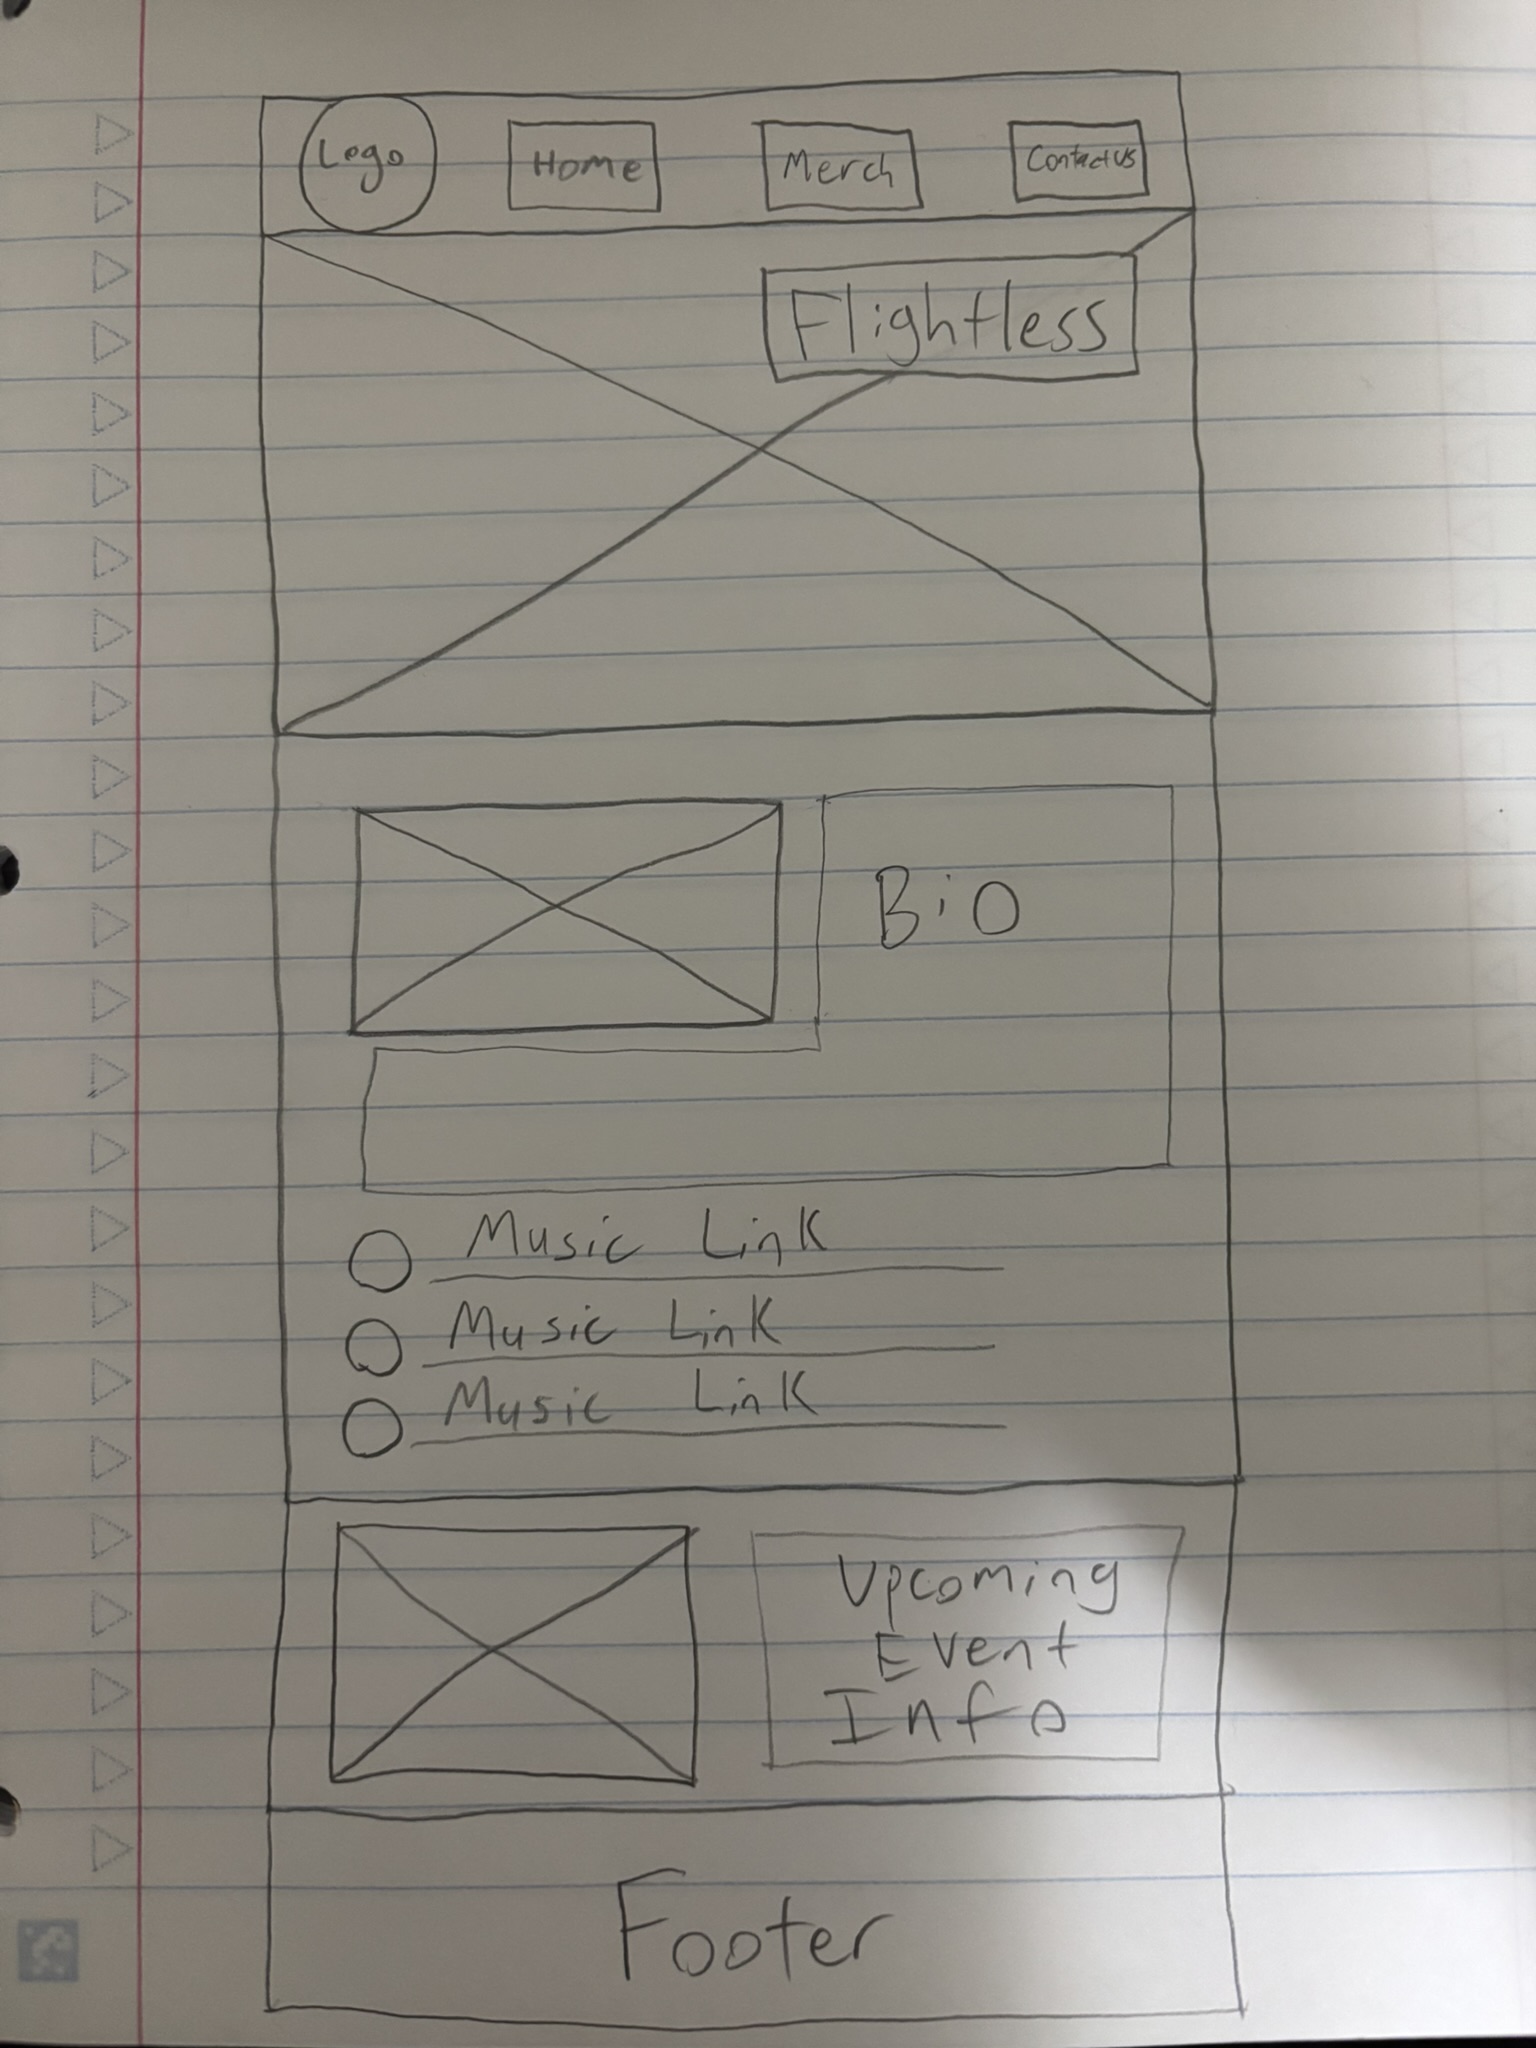 Logo
Home
Merch
Contact Us
Flightless
Bio
Music Link
Music Link
Music Link
Upcoming
Event
Info
Footer